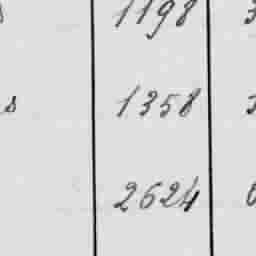 1198
s 1358
2624